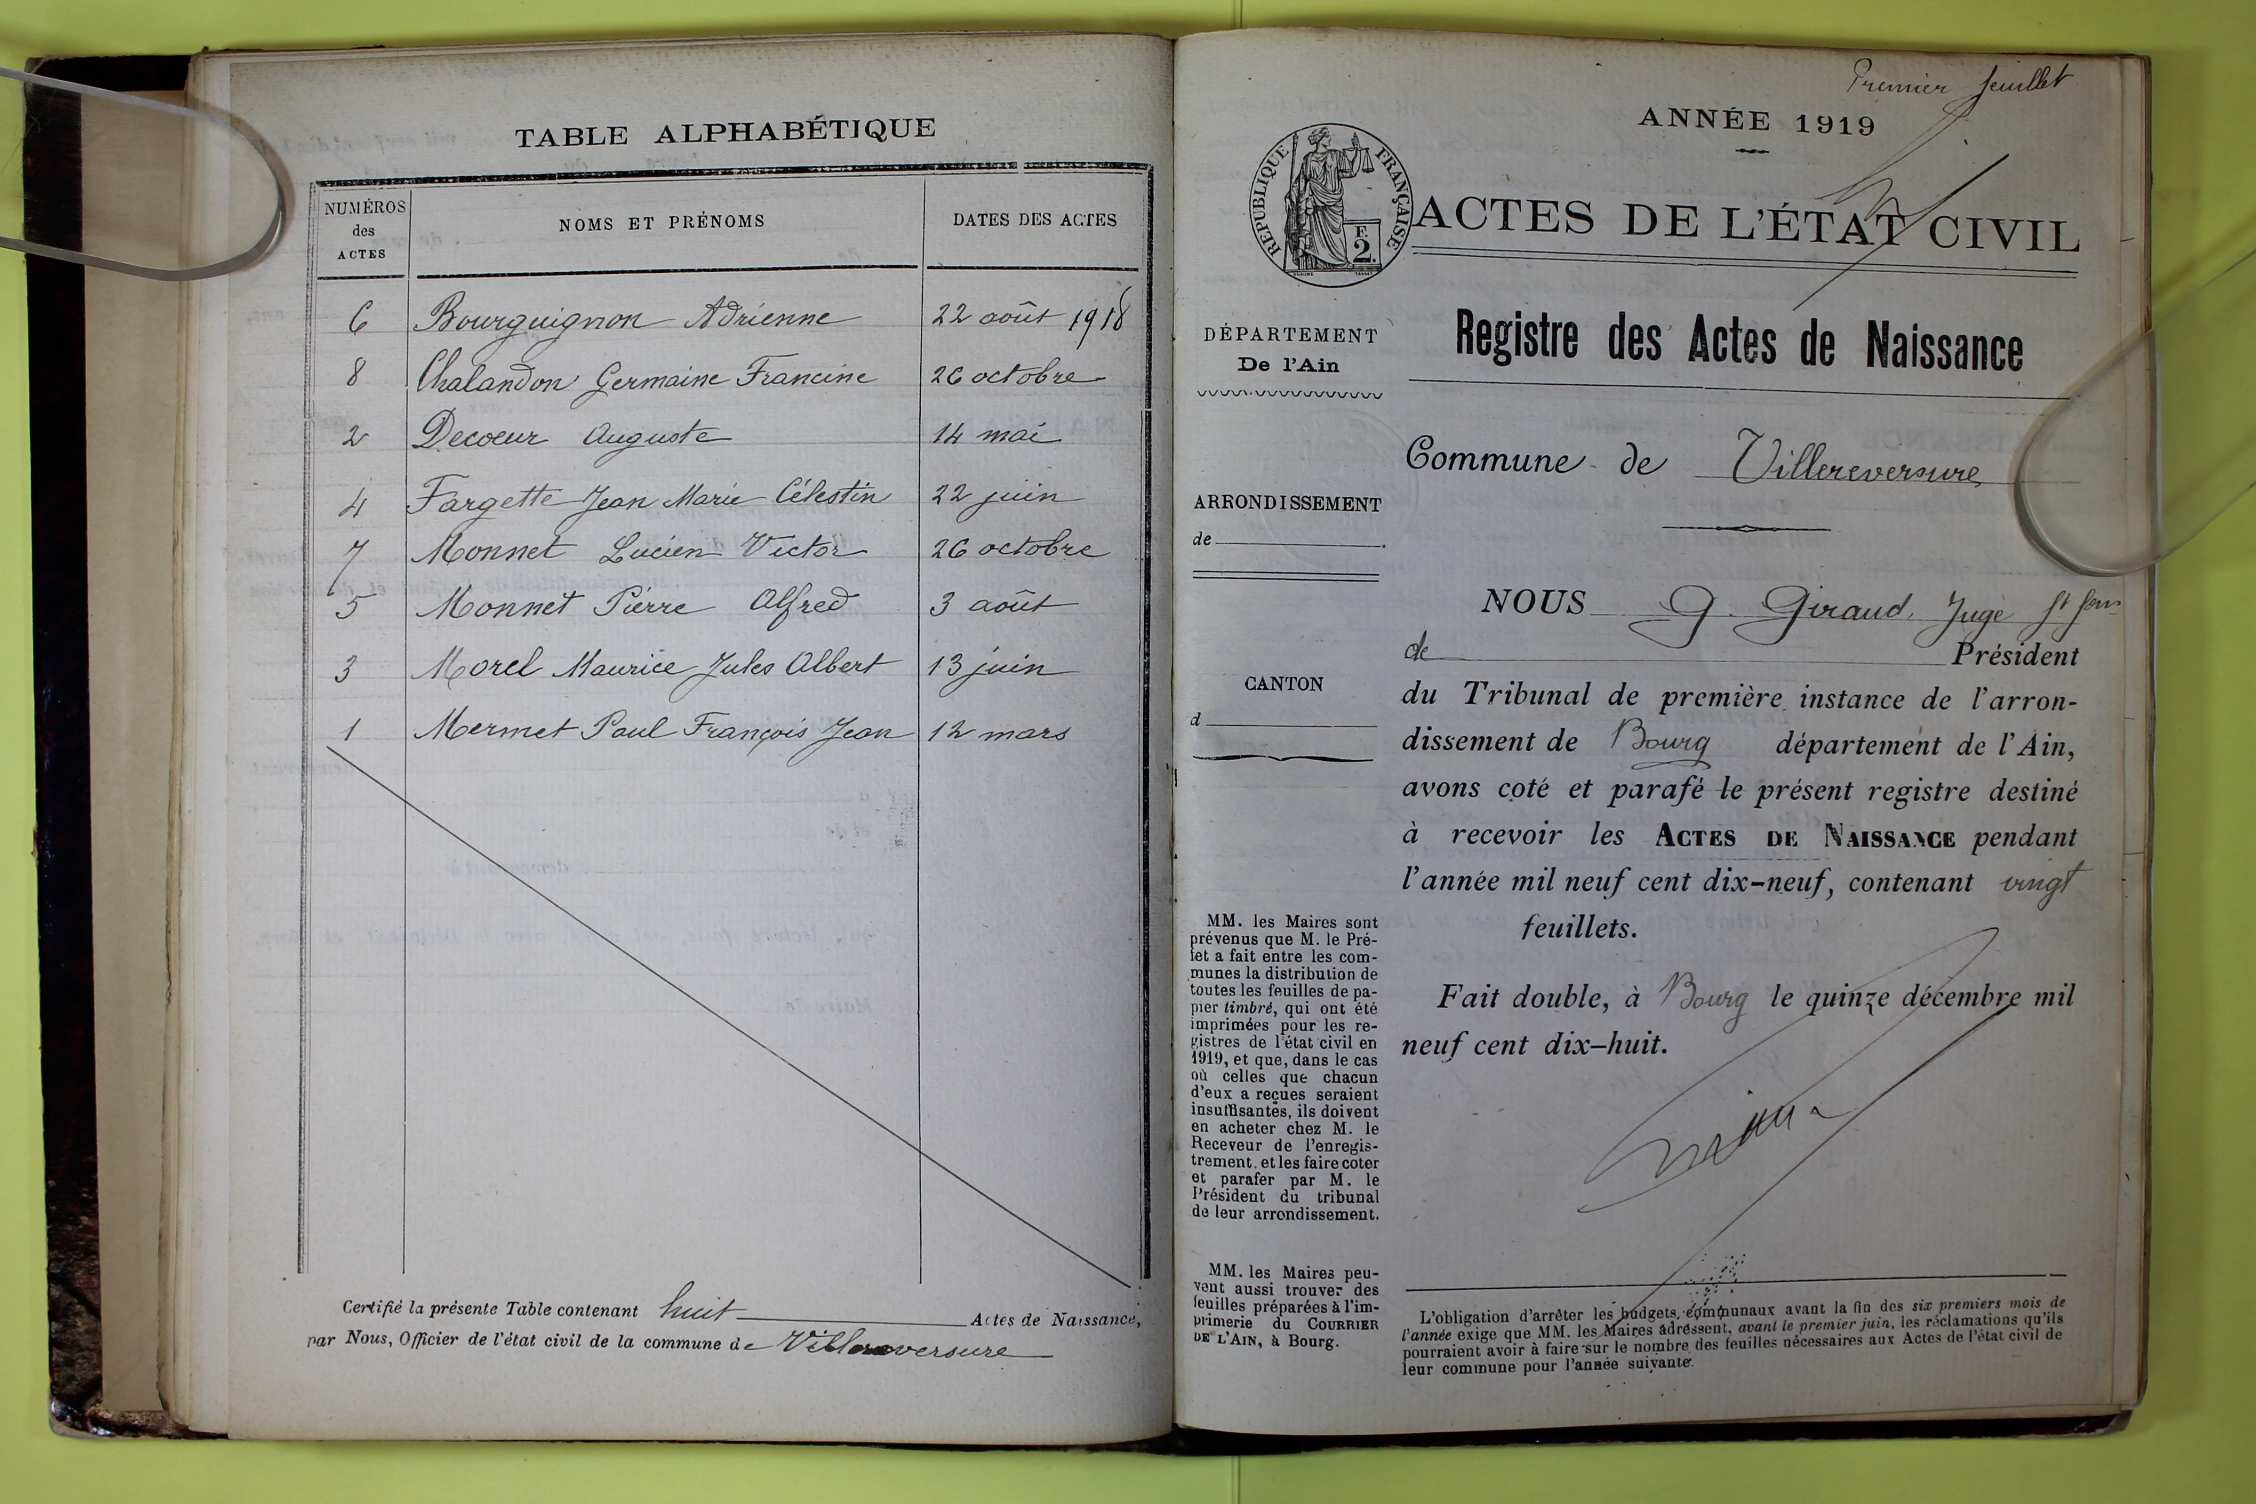 TABLE ALPHABÉTIQUE
NUMÉROS des ACTES NOMS ET PRÉNOMS DATES DES ACTES
6 Bourguignon Adrienne 22 août 1918
8 Chalandon Germaine Francine 26 octobre
2 Decoeur Auguste 14 mai
4 Fargette Jean Marie Célestin 22 juin
7 Monnet Lucien Victor 26 octobre
5 Monnet Pierre Alfred 3 août
3 Morel Maurice Jules Albert 13 juin
1 Mermet Paul François Jean 12 mars
Certifié la présente Table contenant huit Actes de Naissance,
par Nous, Officier de l'état civil de la commune de Villereversure
Premier feuillet
ANNÉE 1919
RÉPUBLIQUE FRANÇAISE
F. 2.
ACTES DE L'ÉTAT CIVIL
DÉPARTEMENT
De l'Ain
ARRONDISSEMENT
de
CANTON
d
MM. les Maires sont
prévenus que M. le Pré-
fet a fait entre les com-
munes la distribution de
toutes les feuilles de pa-
pier timbré, qui ont été
imprimées pour les re-
gistres de l'état civil en
1919, et que, dans le cas
où celles que chacun
d'eux a reçues seraient
insuffisantes, ils doivent
en acheter chez M. le
Receveur de l'enregis-
trement, et les faire coter
et parafer par M. le
Président du tribunal
de leur arrondissement.
MM. les Maires peu-
vent aussi trouver des
feuilles préparées à l'im-
primerie du COURRIER
DE L'AIN, à Bourg.
Registre des Actes de Naissance
Commune de Villereversure
NOUS G. Giraud, Juge
de Président
du Tribunal de première instance de l'arron-
dissement de Bourg département de l'Ain,
avons coté et parafé le présent registre destiné
à recevoir les ACTES DE NAISSANCE pendant
l'année mil neuf cent dix-neuf, contenant vingt
feuillets.
Fait double, à Bourg le quinze décembre mil
neuf cent dix-huit.
L'obligation d'arrêter les budgets communaux avant la fin des six premiers mois de
l'année exige que MM. les Maires adressent, avant le premier juin, les réclamations qu'ils
pourraient avoir à faire sur le nombre des feuilles nécessaires aux Actes de l'état civil de
leur commune pour l'année suivante.